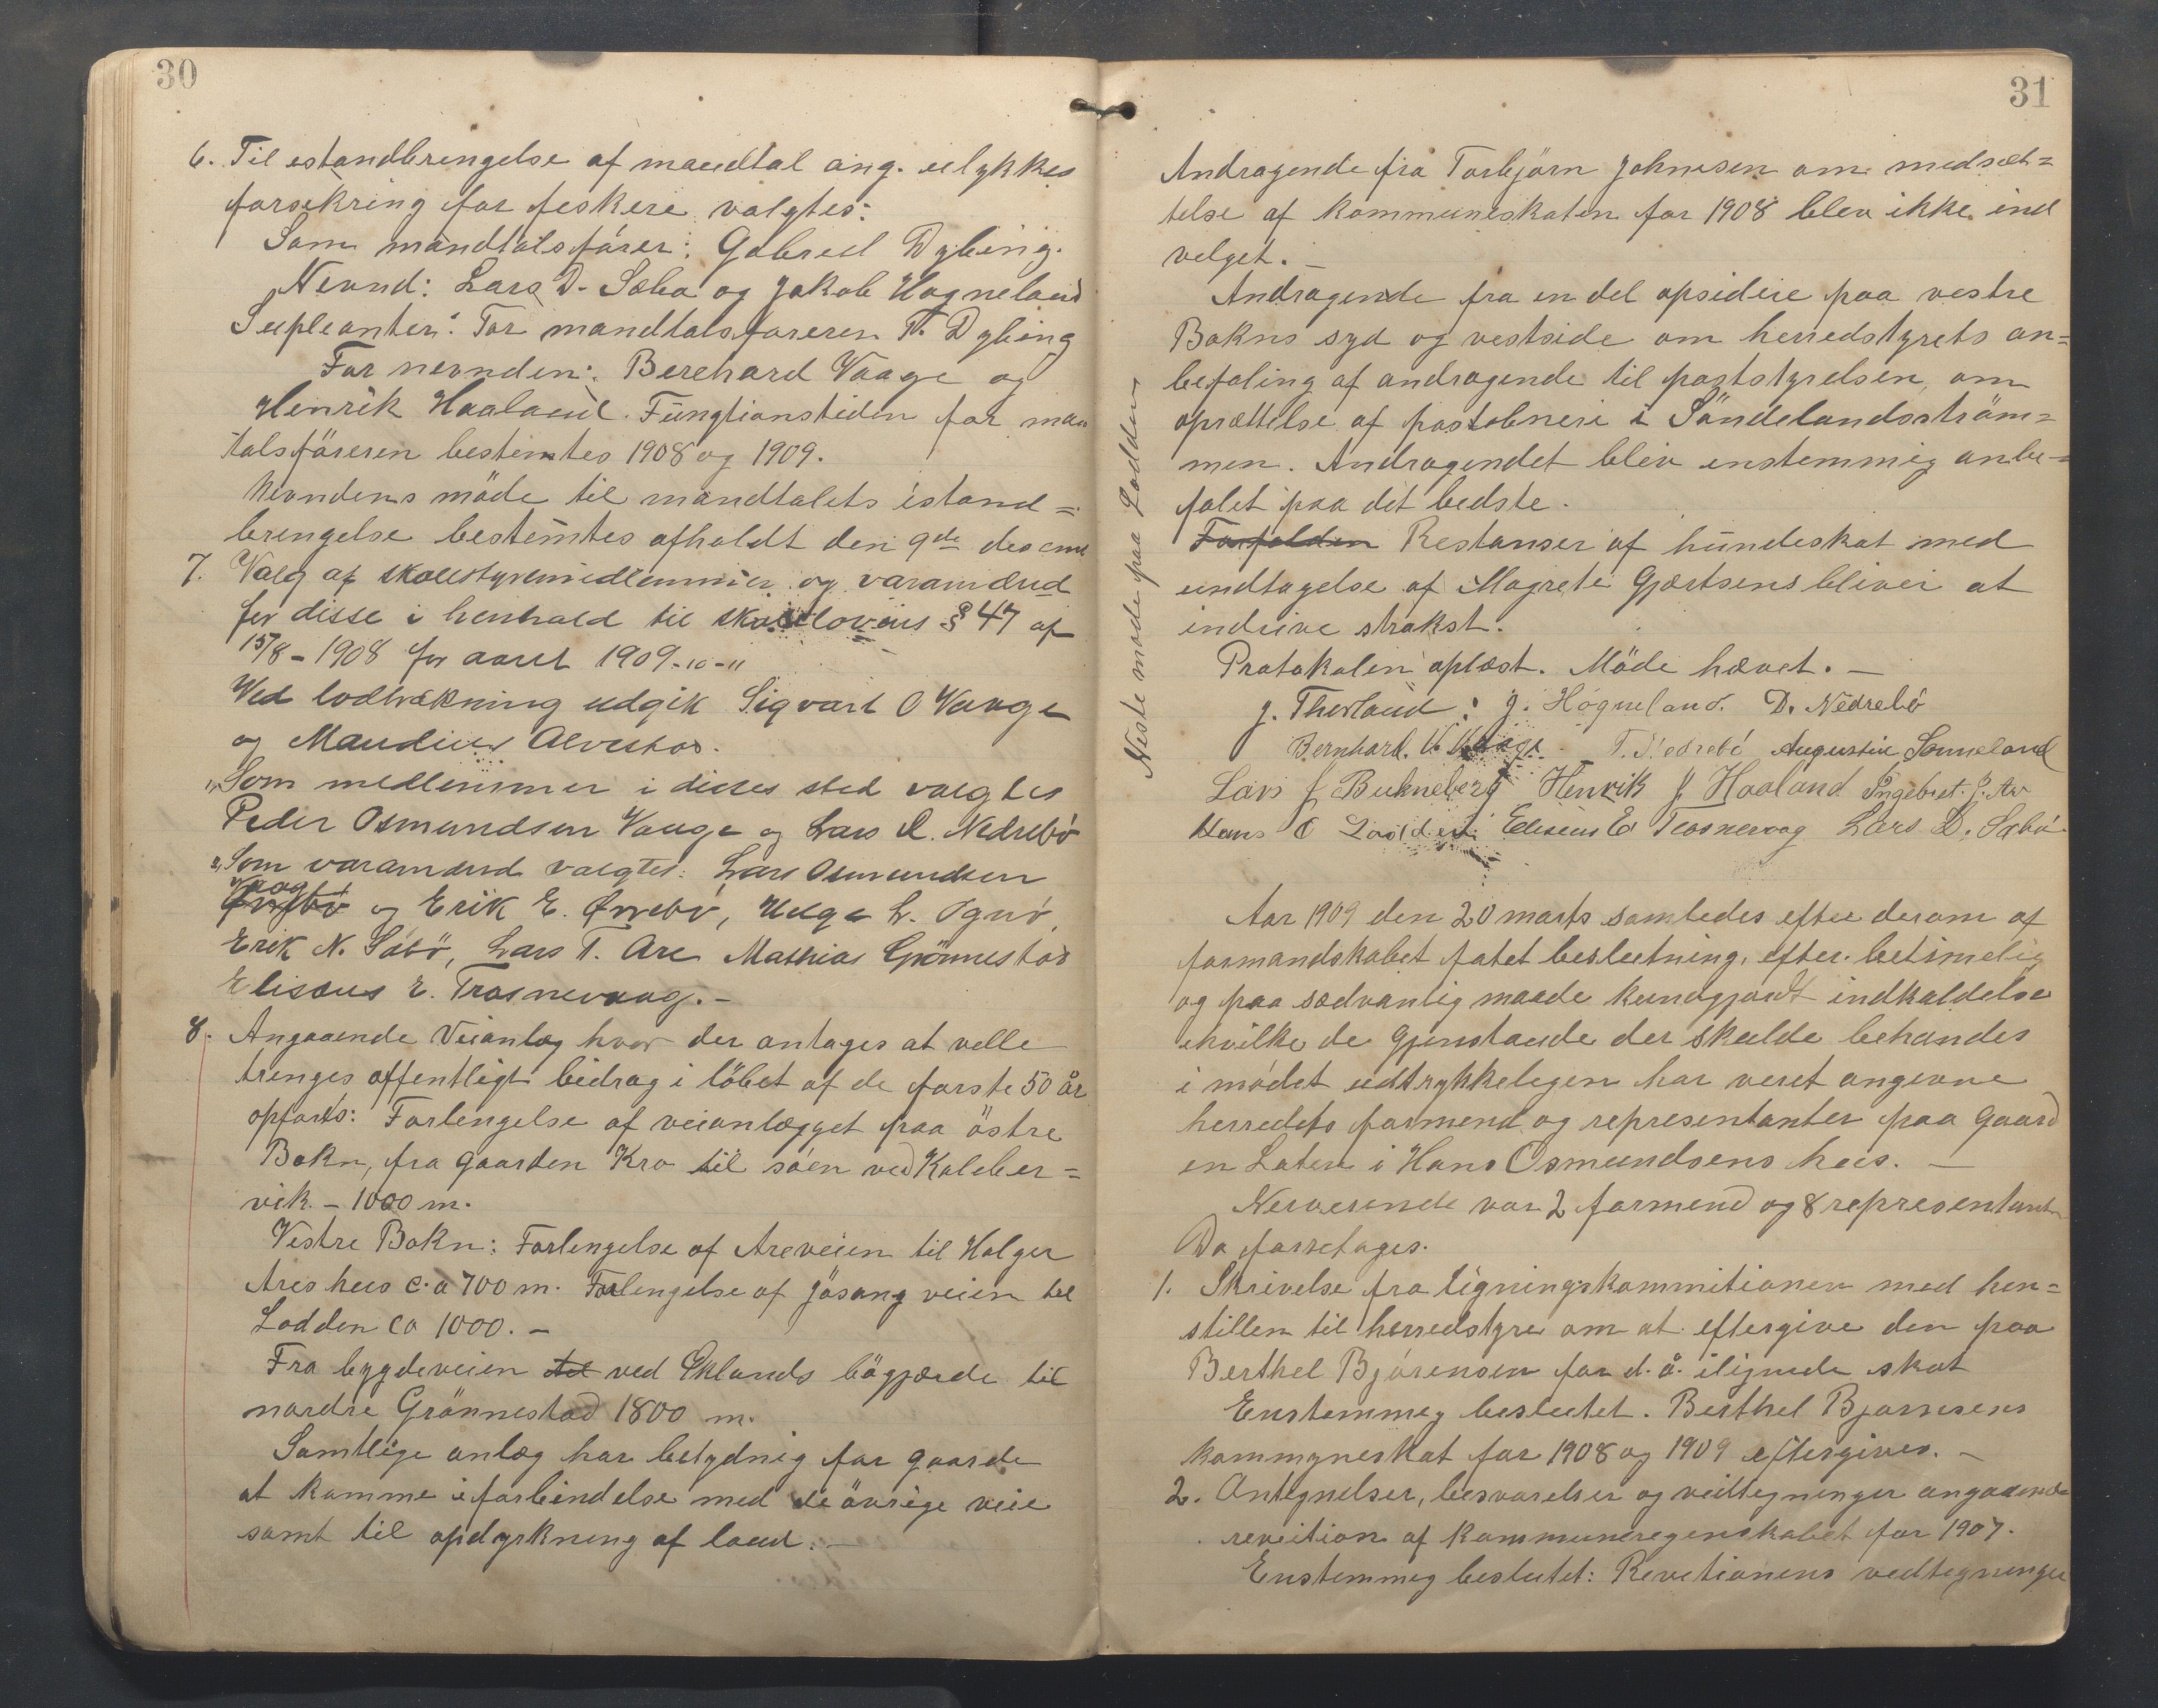 30
6. Til istandbringelse af mandtal ang. ulykkes
forsekring for feskere valgtes:
Som mandtalsfører: Gabriel Dybing.
Nevnd: Lars D. Sæbø og Jakob Hogneland
Supleanter: For mandtalsføreren T. Dybing
For nevnden: Berehard Vaage og
Henrik Haaland. Fungtionstiden for man
talsføreren bestemtes 1908 og 1909.
Nevndens møde til mandtalets istand=
bringelse bestemtes afholdt den 9de des
7. Valg af skolestyremedlemmer og varamænd
for disse i henhold til skolelovens § 47 af
15/8-1908 for aaret 1909-10-11
Ved lodtrækning udgik Sigvart O Vaage
og Maudius Alvestad.
1, Som medlemmer i disses sted valgtes
Peder Osmundsen Vaage og Lars L. Nedrebø
2, Som varamænd valgtes: Lars Osmundsen
Vaage og Erik E. Ørrebø, Helge L. Ognø,
Erik N. Søbø, Lars T. Are Mathias Grönnestad
Elisæus E. Trosnevaag.-
8. Angaaende Veianlæg hvor der antages at ville
trenges offentligt bidrag i löbet af de første 50 år
opførts: Forlengelse af veianlægget paa östre
Bokn, fra gaarden Kro til søen ved Kalvber=
vik - 1000 m.
Vestre Bokn: Forlengelse af Areveien til Holger
Ares hus c.a 700 m. Forlengelse af Jøsang veien til
Lodden ca 1000.-
Fra bygdeveien til ved Eklands bögjærde til
nordre Grönnestad 1800 m.
Samtlige anlæg har betydnig for gaarde
at komme i forbindelse med de övrige veie
samt til opdyrkning af land.-
31
Neste møde paa Lodden
Andragende fra Torbjørn Johnesen om nedsæt=
telse af kommuneskaten for 1908 blev ikke ind
velget.-
Andragende fra en del opsidere paa vestre
Bokns syd og vestside om herredstyrets an=
befaling af andragende til poststyrelsen, om
oprættelse af postobneri i Söndelandsström=
men. Andragendet blev enstemmig anbe=
falet paa det bedste.
Forfolden Restanser af hundeskat med
undtagelse af Magrete Gjærtsens bliver at
indrive strakst.
Protokolen oplæst. Möde hævet.-
J. Thorland: J. Hogneland. D. Nedrebø
Bernhard. V. Vaage. T. Nedrebø Augustin Sonneland
Lars J Bukneberg Henrik J Haaland Ingebret. J. Are
Hans O Lodden Eliseus E Trosnevag Lars D. Sæbø
Aar 1909 den 20 marts samledes efter derom af
formandskabet fatet beslutning, efter betimelig
og paa sædvanlig maade kundgjordt indkaldelse
ihvilke de Gjenstande der skulde behandes
i mødet udtrykkelegen har veret angevne
herredets formend og representanter paa Gaard
en Laten i Hans Osmundsens hus.-
Nerverende var 2 formend og 8 representanter
Da forretages.
1. Skrivelse fra ligningskommitionen med hen=
stillen til herredstyre om at eftergive den paa
Berthel Bjørensen for d. å. ilignede skat
Enstemmeg beslutet. Berthel Bjørnsens
kommyneskat for 1908 og 1909 eftergives.-
2. Antegnelser, besvarelser og vedtegninger angaaende
revition af kommuneregenskabet for 1907.
Enstemmeg beslutet: Revetionens vedtegninger